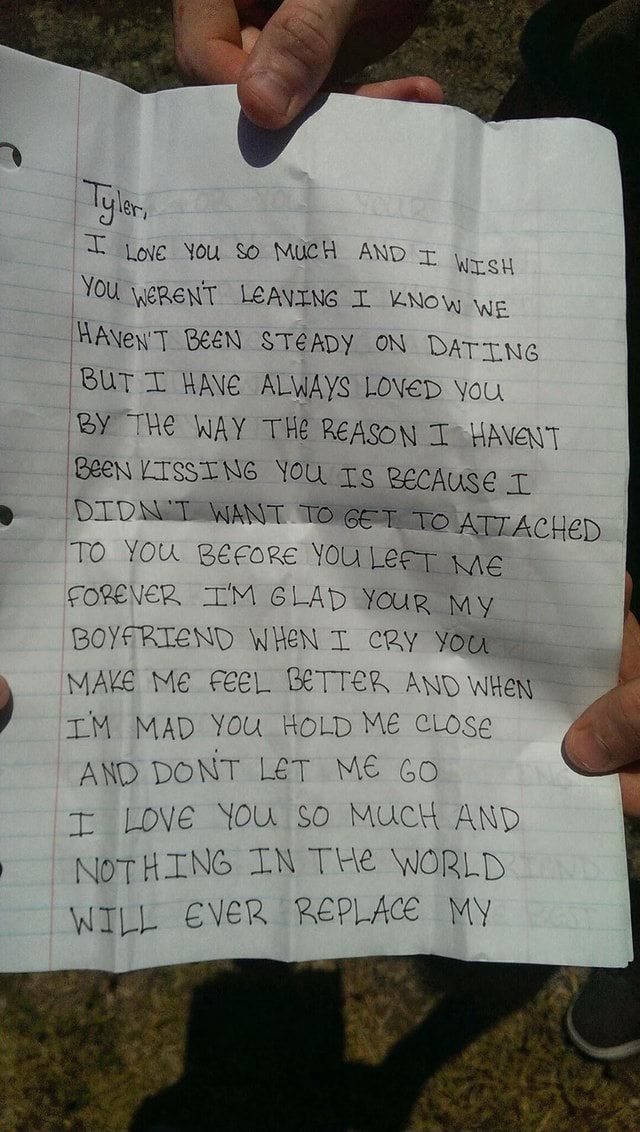 Tyler,
I LOVE YOU SO MUCH AND I WISH
YOU WEREN'T LEAVING I KNOW WE
HAVEN'T BEEN STEADY ON DATING
BUT I HAVE ALWAYS LOVED YOU
BY THE WAY THE REASON I HAVENT
BEEN KISSING YOU IS BECAUSE I
DIDN'T WANT TO GET TO ATTACHED
TO YOU BEFORE YOU LEFT ME
FOREVER I'M GLAD YOUR MY
BOYFRIEND WHEN I CRY YOU
MAKE ME FEEL BETTER AND WHEN
I'M MAD YOU HOLD ME CLOSE
AND DON'T LET ME GO
I LOVE YOU SO MUCH AND
NOTHING IN THE WORLD
WILL EVER REPLACE MY